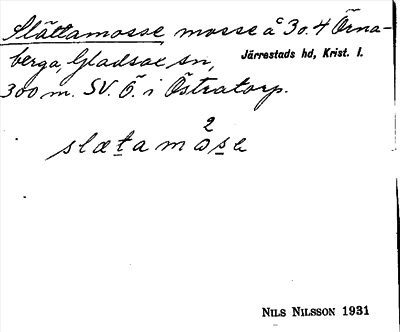 Slättamosse mosse å 3o. 4 Örna-
berga, Gladsax sn, Järrestads hd, Krist. l.
300 m. SV. Ö. i Östratorp.
2
slætamåse
NILS NILSSON 1931